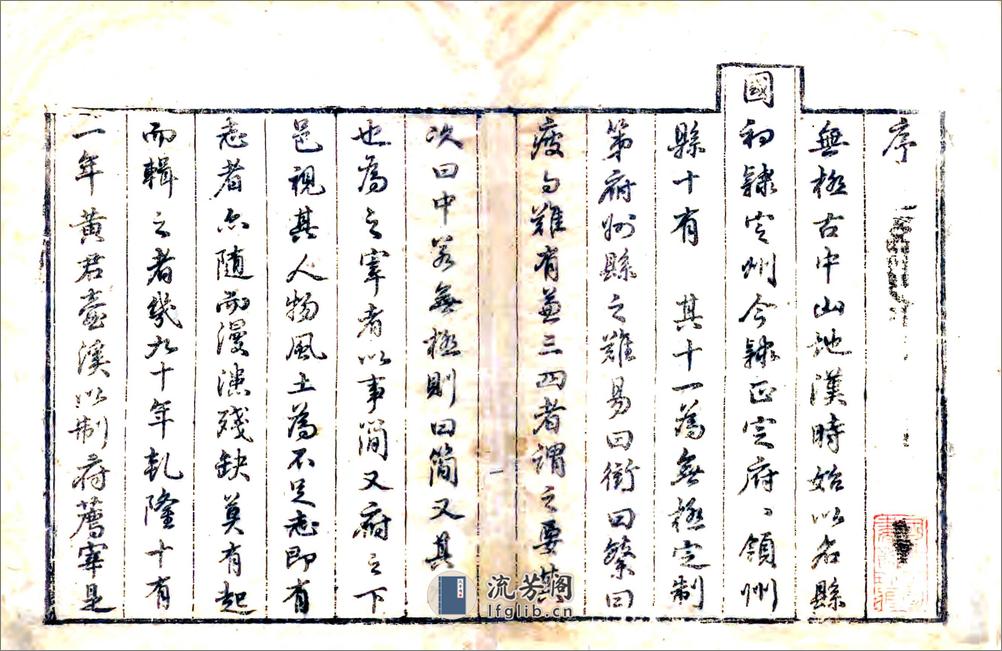 序
無極古中山地漢時始以名縣
國初隸定州今隸正定府〻領州
縣十有 其十一為無極定制
第府州縣之難易曰衝曰繁曰
疲曰難有兼三四者謂之要其
次曰中若無極則曰簡又其
也為之宰者以事簡又府之下
邑視其人物風土為不足志即有
志者亦隨而漫漶殘缺莫有起
而輯之者幾九十年乾隆十有
一年黃君臺溪以制府薦宰是
一
流芳閣
lfglib.cn